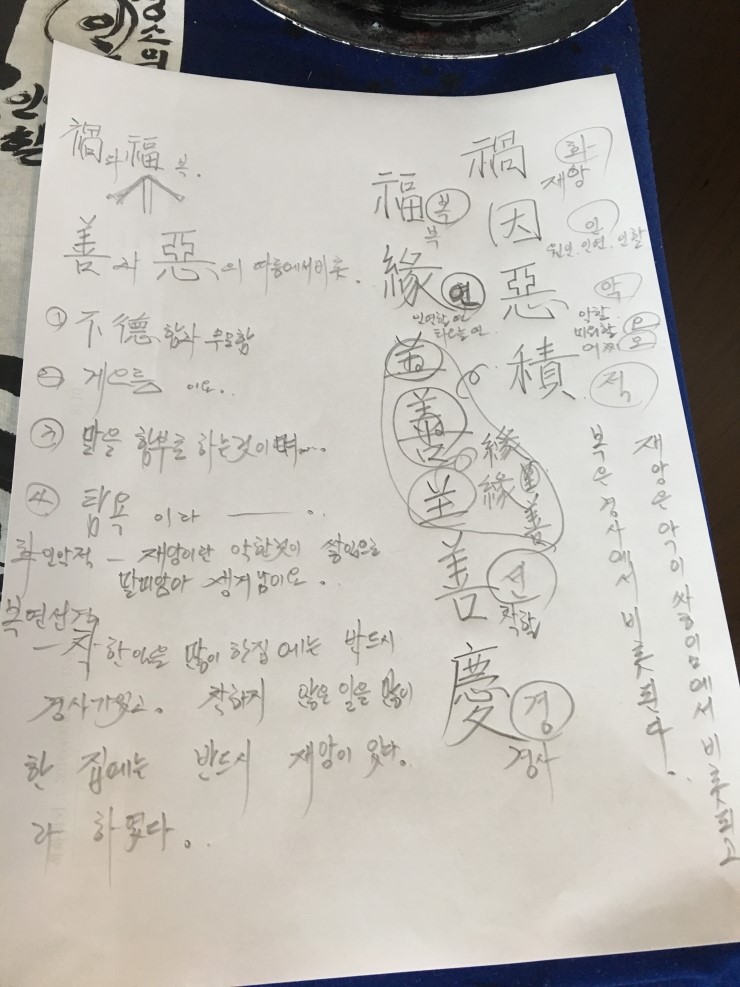 禍와 福 복.
善과 惡의 따름에서 비롯.
① 不德함과 무모함
② 게으름 이요..
③ 말을 함부로 하는것이며....
④ 탐욕 이라
화인악적 - 재앙이란 악한것이 쌓임으로
말미암아 생겨남이요.
복연선경
- 착한일을 많이 한집에는 반드시
경사가 있고. 착하지 않은 일을 많이
한 집에는 반드시 재앙이 있다.
라 하였다.
禍 화 재앙
因 인 원인. 인연. 인할
惡 악 악할 미워할 오 어찌 오
積 적
福 복 복
緣 연 인연할 연
善
緣
緣 善
善 선 착할
慶 경 경사
재앙은 악이 쌓이임에서 비롯되고
복은 경사에서 비롯된다.
인